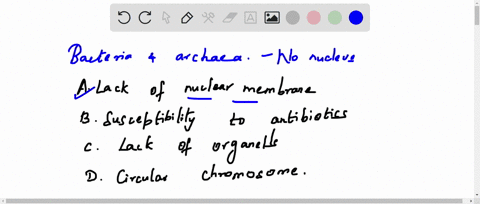 Bacteria & archaea. - No nucleus
A. Lack of nuclear membrane
B. Susceptibility to antibiotics
C. Lack of organells
D. Circular chromosome.